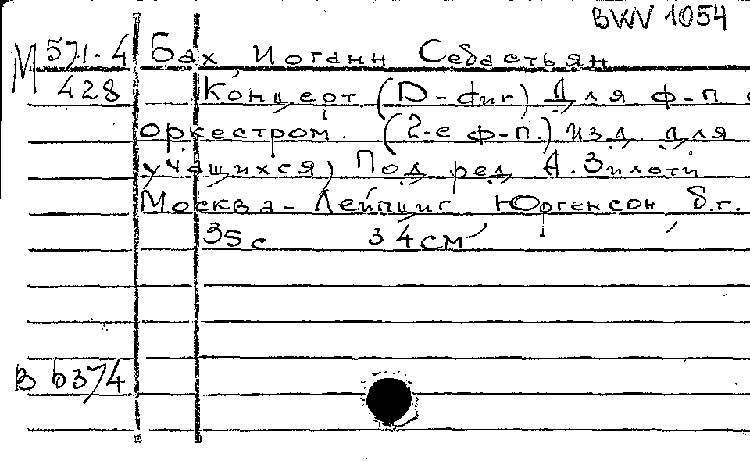 BWV 1054
М 571-4 Бах Иоганн Себастьян
428 Концерт (D-dur) Для ф-п с
оркестром. (2-е ф-п.) изд. для
учащихся) Под ред А. Зилоти
Москва - Лейпциг Юргенсон б.г.
35 с 34 см
В 6374